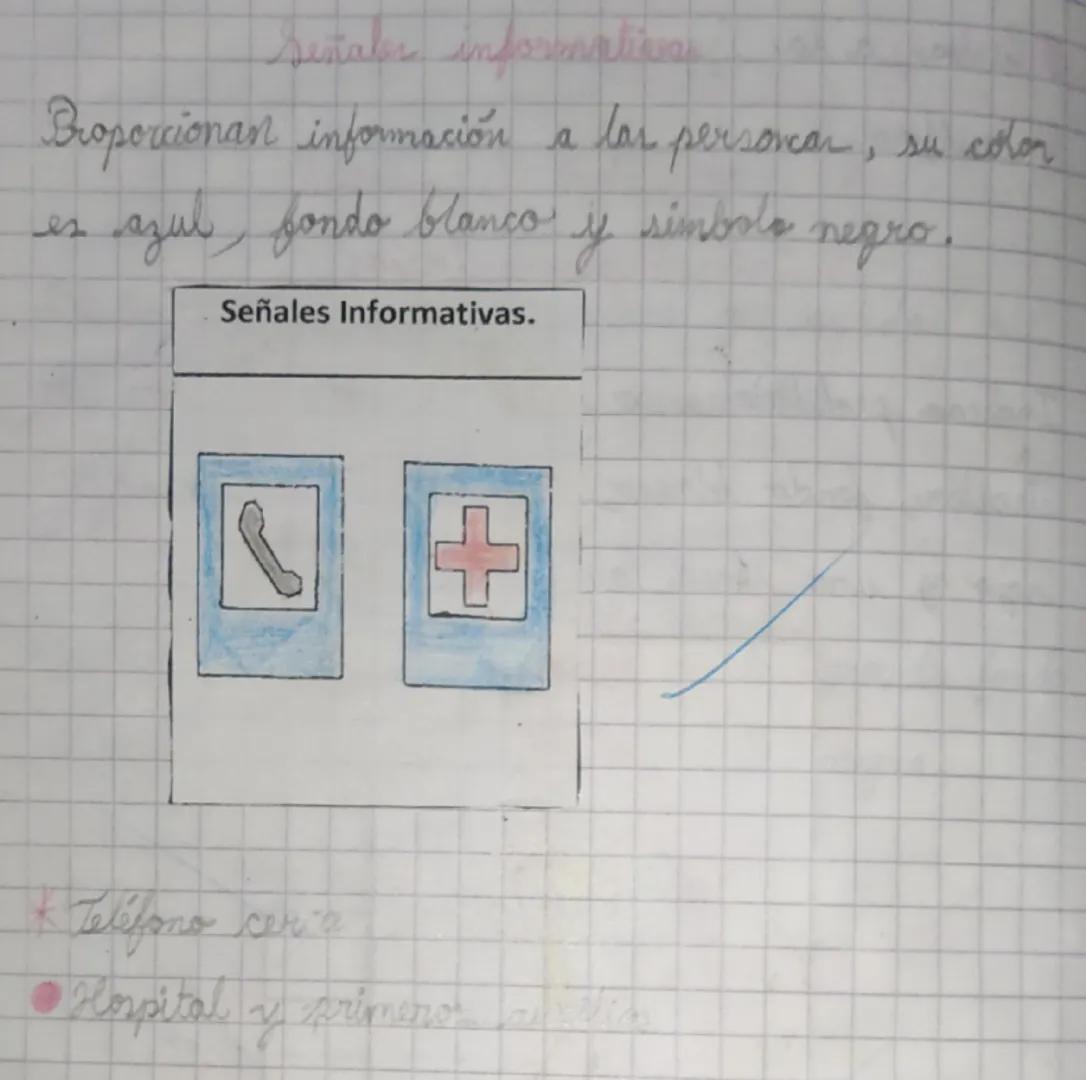 Señales informativas
Proporcionan información a las personas, su color
es azul, fondo blanco y simbolo negro.
Señales Informativas.
* Teléfono cerca
Hospital y primeros